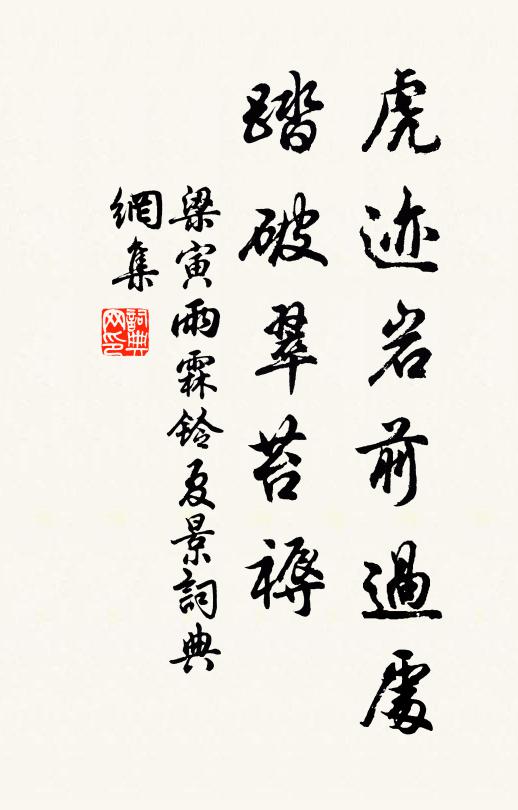 虎迹岩前過處
踏破翠苔褥
梁寅雨霖鈴夏景詞典
網集
詞典网印